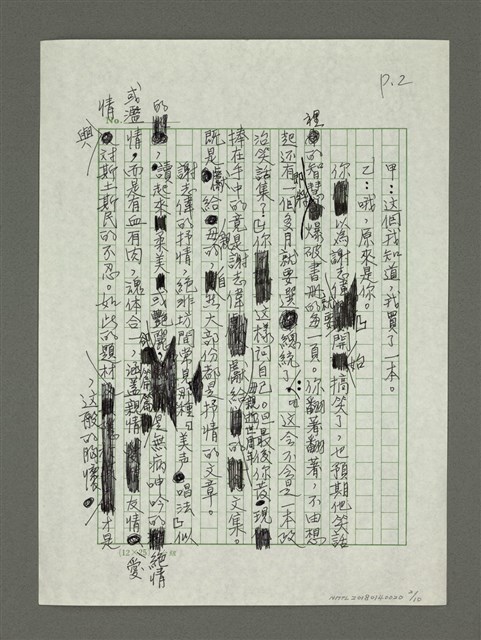 P.2
甲：這個我知道，我買了一本。
乙：哦，原來是你。」
你以為謝志偉就要開始搞笑了，也預期他笑話
裡的智慧即將爆破書冊的每一頁。你翻著翻著，不由想
起還有一個多月就要選總統了：「這會不會是一本政
治笑話集？」你這樣問自己。但最後你發現
捧在手中的竟是謝志偉獻給母親逝世周年的文集。
既是獻給母親的，自大部份都是抒情的文章。
謝志偉的抒情，絕非坊間常見那種「美声唱法」似
的，讀起來美或艷麗，是無病呻吟的絕情
或濫情，而是有血有肉，魂体合一，涵蓋親情、友情、愛
情與對斯土斯民的不忍。如此的題材，這般的胸懷，才是
No.
(12×25)
NMTL20180140020 2/10